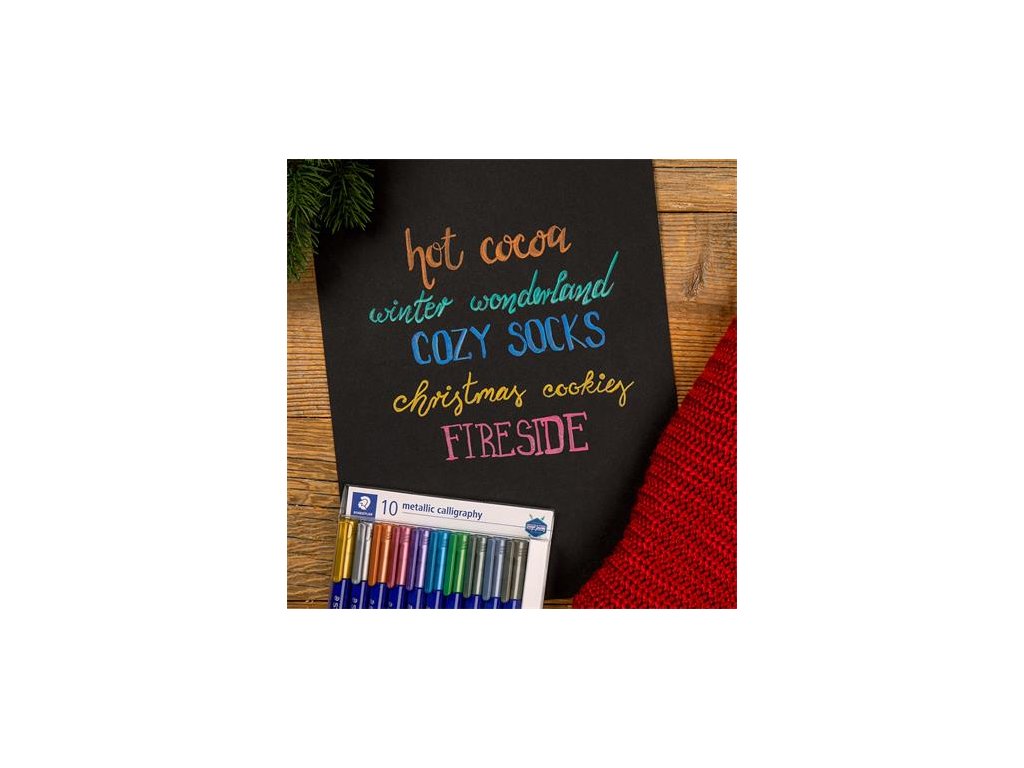 hot cocoa
winter wonderland
COZY SOCKS
christmas cookies
FIRESIDE
STAEDTLER
10 metallic calligraphy